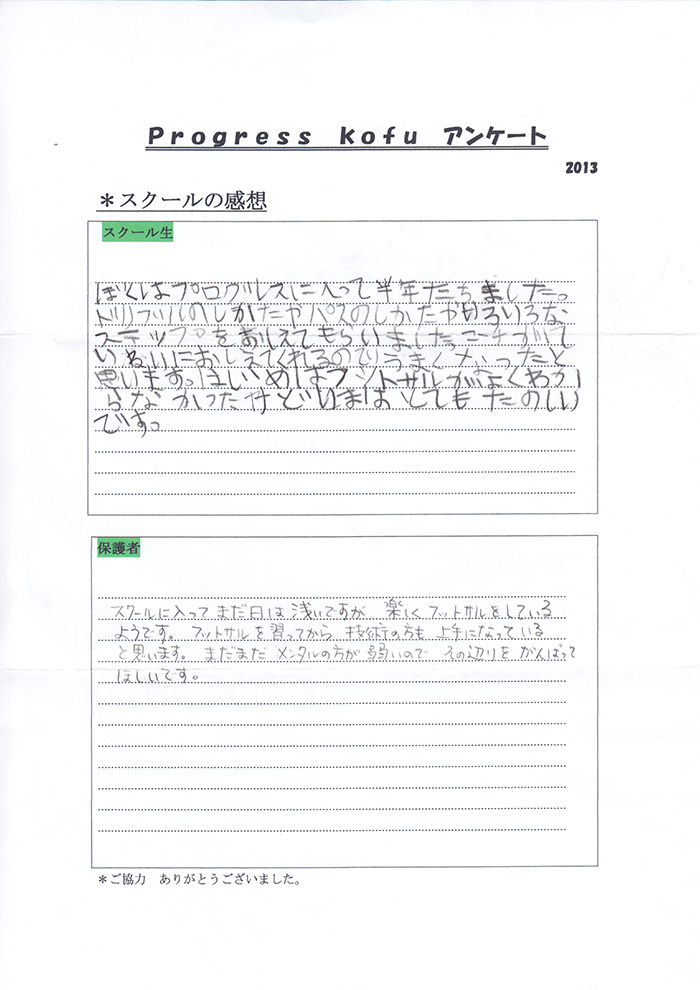 Progress kofu アンケート
2013
＊スクールの感想
スクール生
ぼくはプログレスに入って半年たちました。
ドリブルのしかたやパスのしかたやいろいろな
ステップをおしえてもらいました。コーチがて
いねいにおしえてくれるのでうまくなったと
思います。はじめはフットサルがよくわか
らなかったけどいまはとてもたのしい
です。
保護者
スクールに入ってまだ日は浅いですが 楽しくフットサルをしている
ようです。 フットサルを習ってから 技術の方も 上手になっている
と思います。 まだまだ メンタルの方が 弱いので その辺りを がんばって
ほしいです。
＊ご協力 ありがとうございました。